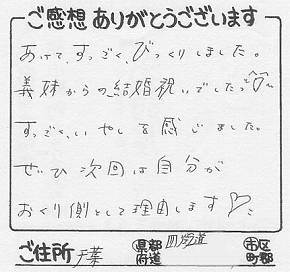 ご感想ありがとうございます
あけて、すっごく、びっくりしました。
義妹からの結婚祝いでしたっ^^
すっごく、いやしを感じました。
ぜひ次回は自分が
おくり側として理由します♡
ご住所 千葉 県都府道 四街道 市区町郡